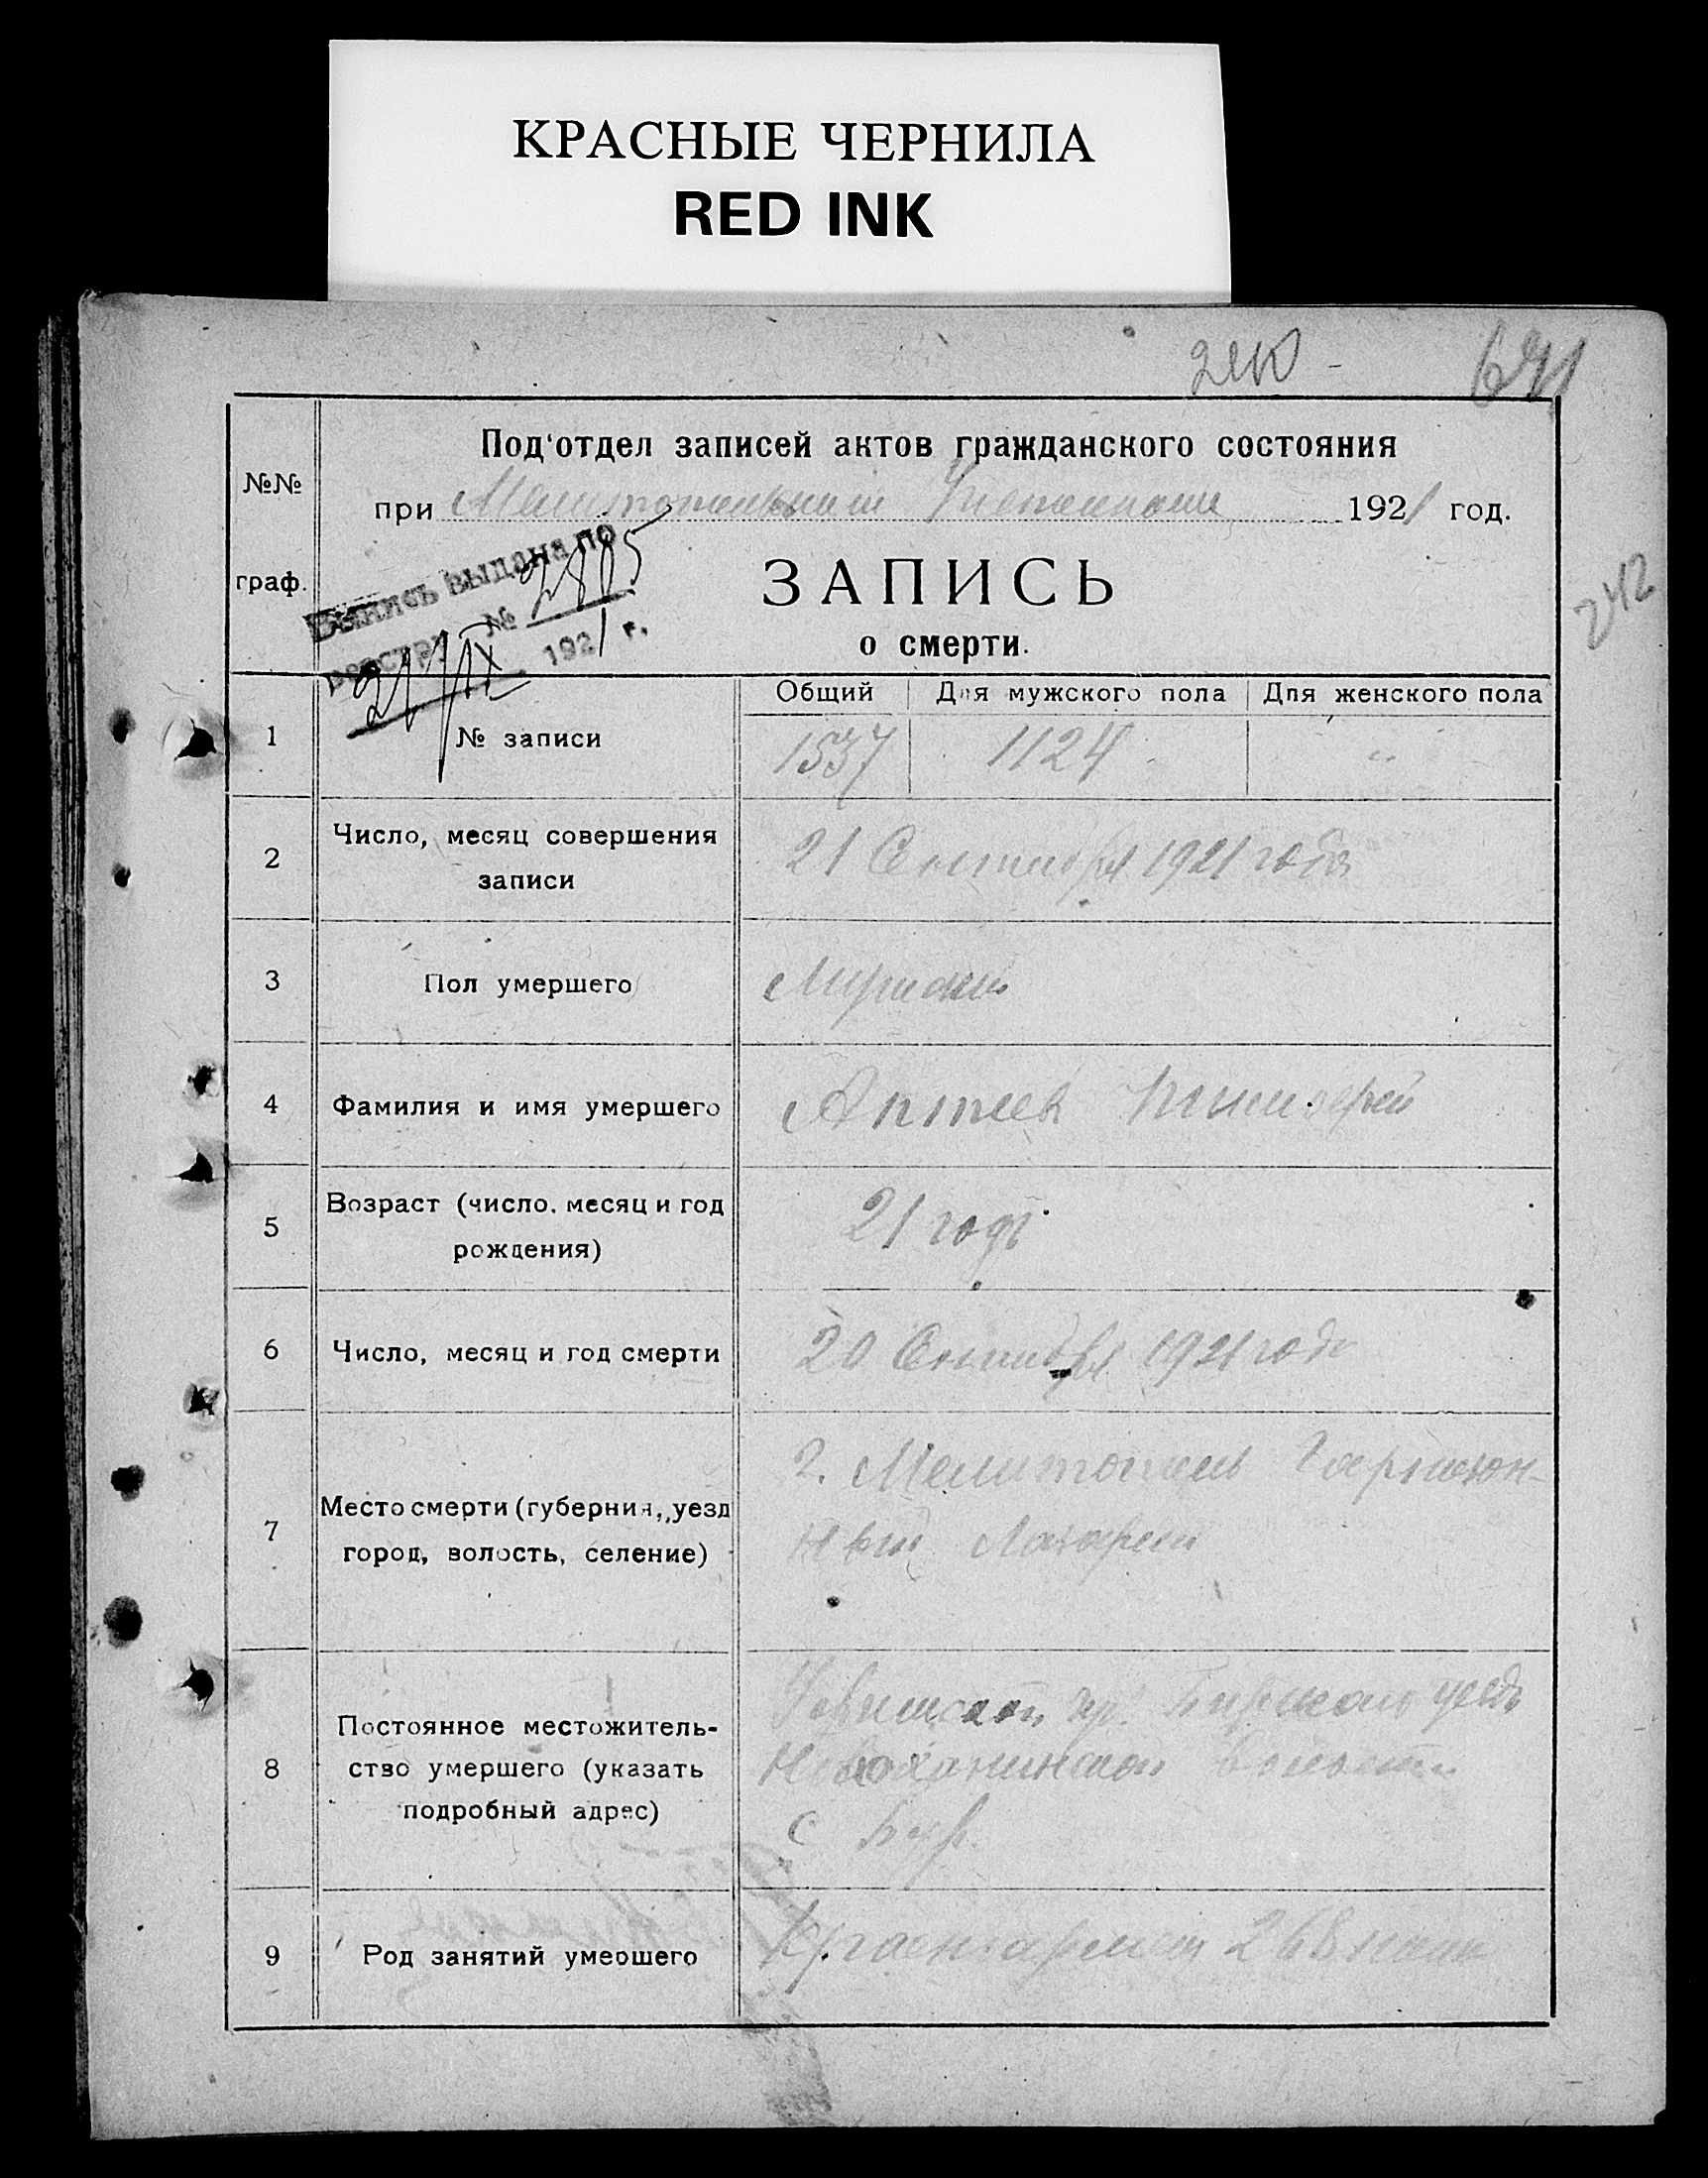 КРАСНЫЕ ЧЕРНИЛА
RED INK
Под'отдел записей актов гражданского состояния
№№
граф.
при 1921 год.
Выпись выдана по
№ 2805
1921 г.
ЗАПИСЬ
о смерти.
242
Общий Для мужского пола Для женского пола
1 № записи 1537 1124 "
2 Число, месяц совершения
записи
21 Сентября 1921 года
3 Пол умершего Мужской
4 Фамилия и имя умершего
5 Возраст (число, месяц и год
рождения)
21 годъ
6 Число, месяц и год смерти 20 Сентября 1921 года
7 Место смерти (губерния, уезд
город, волость, селение)
г. Мелитополь Гарнизон-
ный Лазарет
8 Постоянное местожитель-
ство умершего (указать
подробный адрес)
Уфимской гу. Бирского уезда
волости
с
9 Род занятий умершего Красноармеец 268 полка